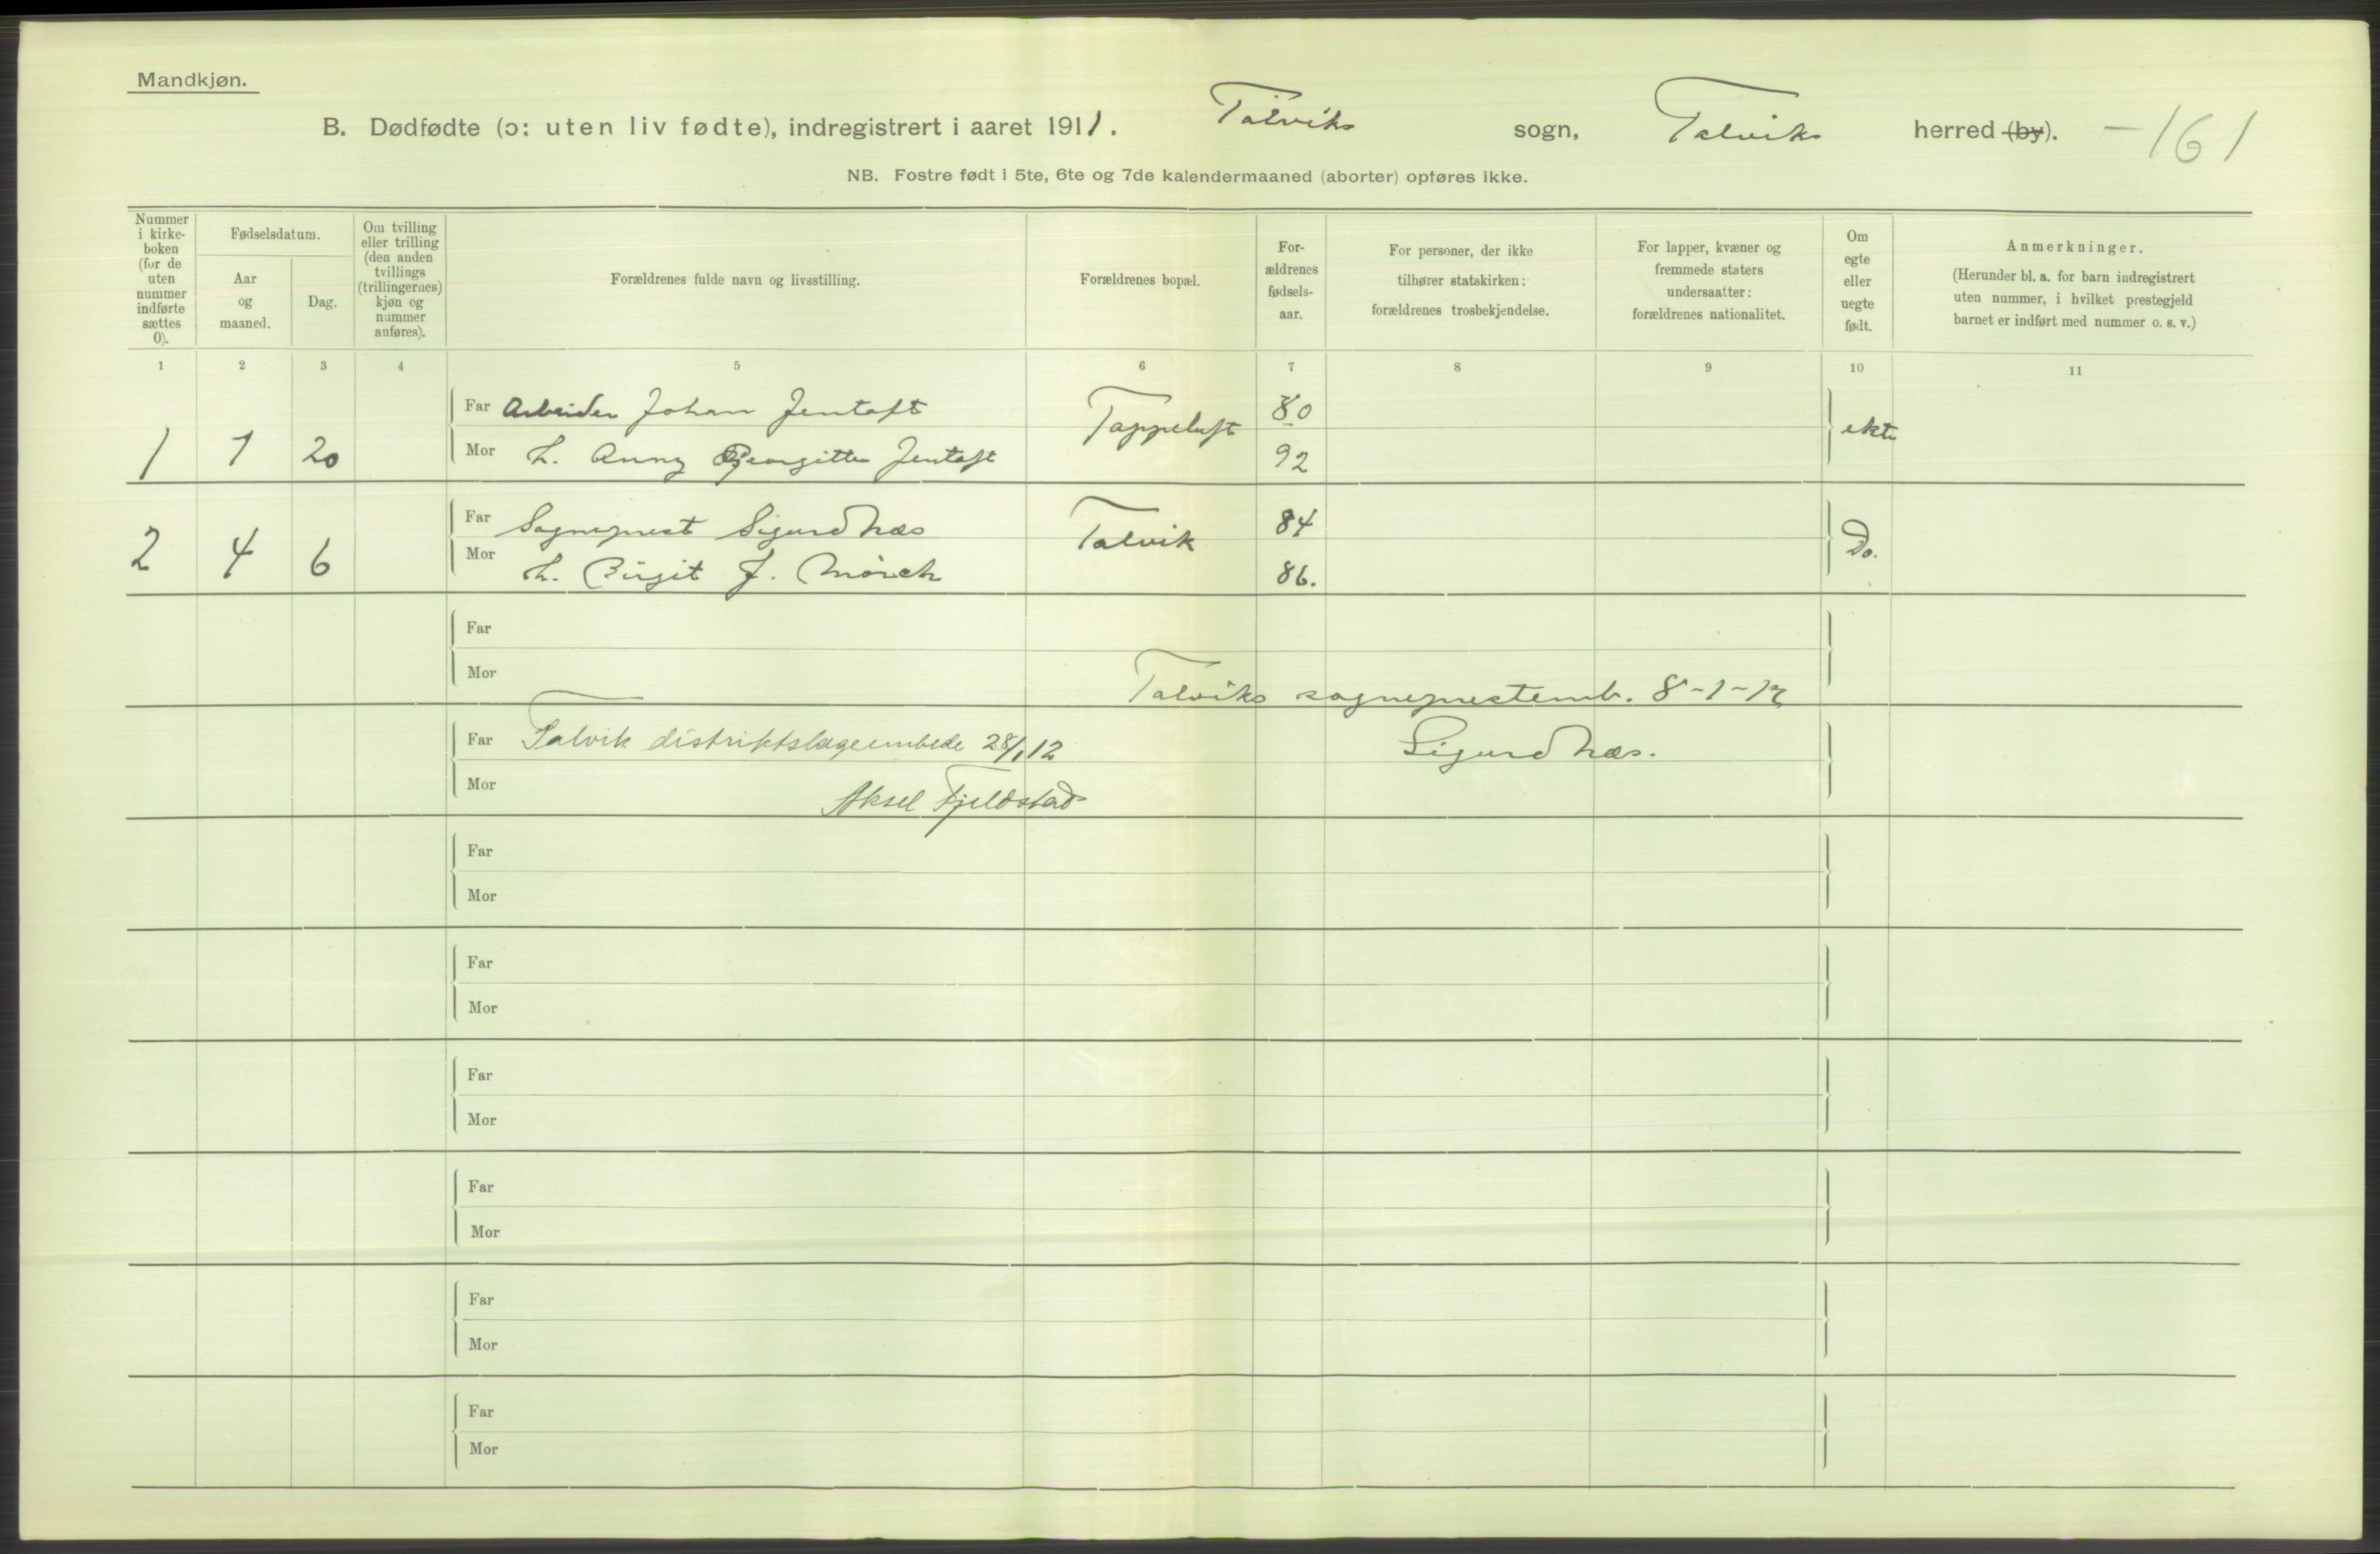 Mandkjøn.
B. Dødfødte (ɔ: uten liv fødte), indregistrert i aaret 1911. Talviks sogn, Talviks herred (by). -161
NB. Fostre født i 5te, 6te og 7de kalendermaaned (aborter) opføres ikke.
Nummer i kirke- boken (for de uten nummer indførte sættes 0).
Fødselsdatum.
Aar og maaned.
Dag.
Om tvilling eller trilling (den anden tvillings (trillingernes) kjøn og nummer anføres).
Forældrenes fulde navn og livsstilling.
Forældrenes bopæl.
For- ældrenes fødsels- aar.
For personer, der ikke tilhører statskirken: forældrenes trosbekjendelse.
For lapper, kvæner og fremmede staters undersaatter: forældrenes nationalitet.
Om egte eller uegte født.
Anmerkninger. (Herunder bl. a. for barn indregistrert uten nummer, i hvilket prestegjeld barnet er indført med nummer o. s. v.)
1 2 3 4 5 6 7 8 9 10 11
Far Arbeider Johan Jentoft 80
1 1 20 Tappeluft ekte
Mor h. Anny Georgitte Jentoft 92
Far Sogneprest Sigurd Næs 84
2 4 6 Talvik Do.
Mor h. Birgit J. Mörch 86.
Far
Mor
Talviks sogneprestemb. 8-1-12
Far Talvik distriktslægeembede 28/1 12
Sigurd Næs.
Mor Aksel Fjeldstad
Far
Mor
Far
Mor
Far
Mor
Far
Mor
Far
Mor
Far
Mor